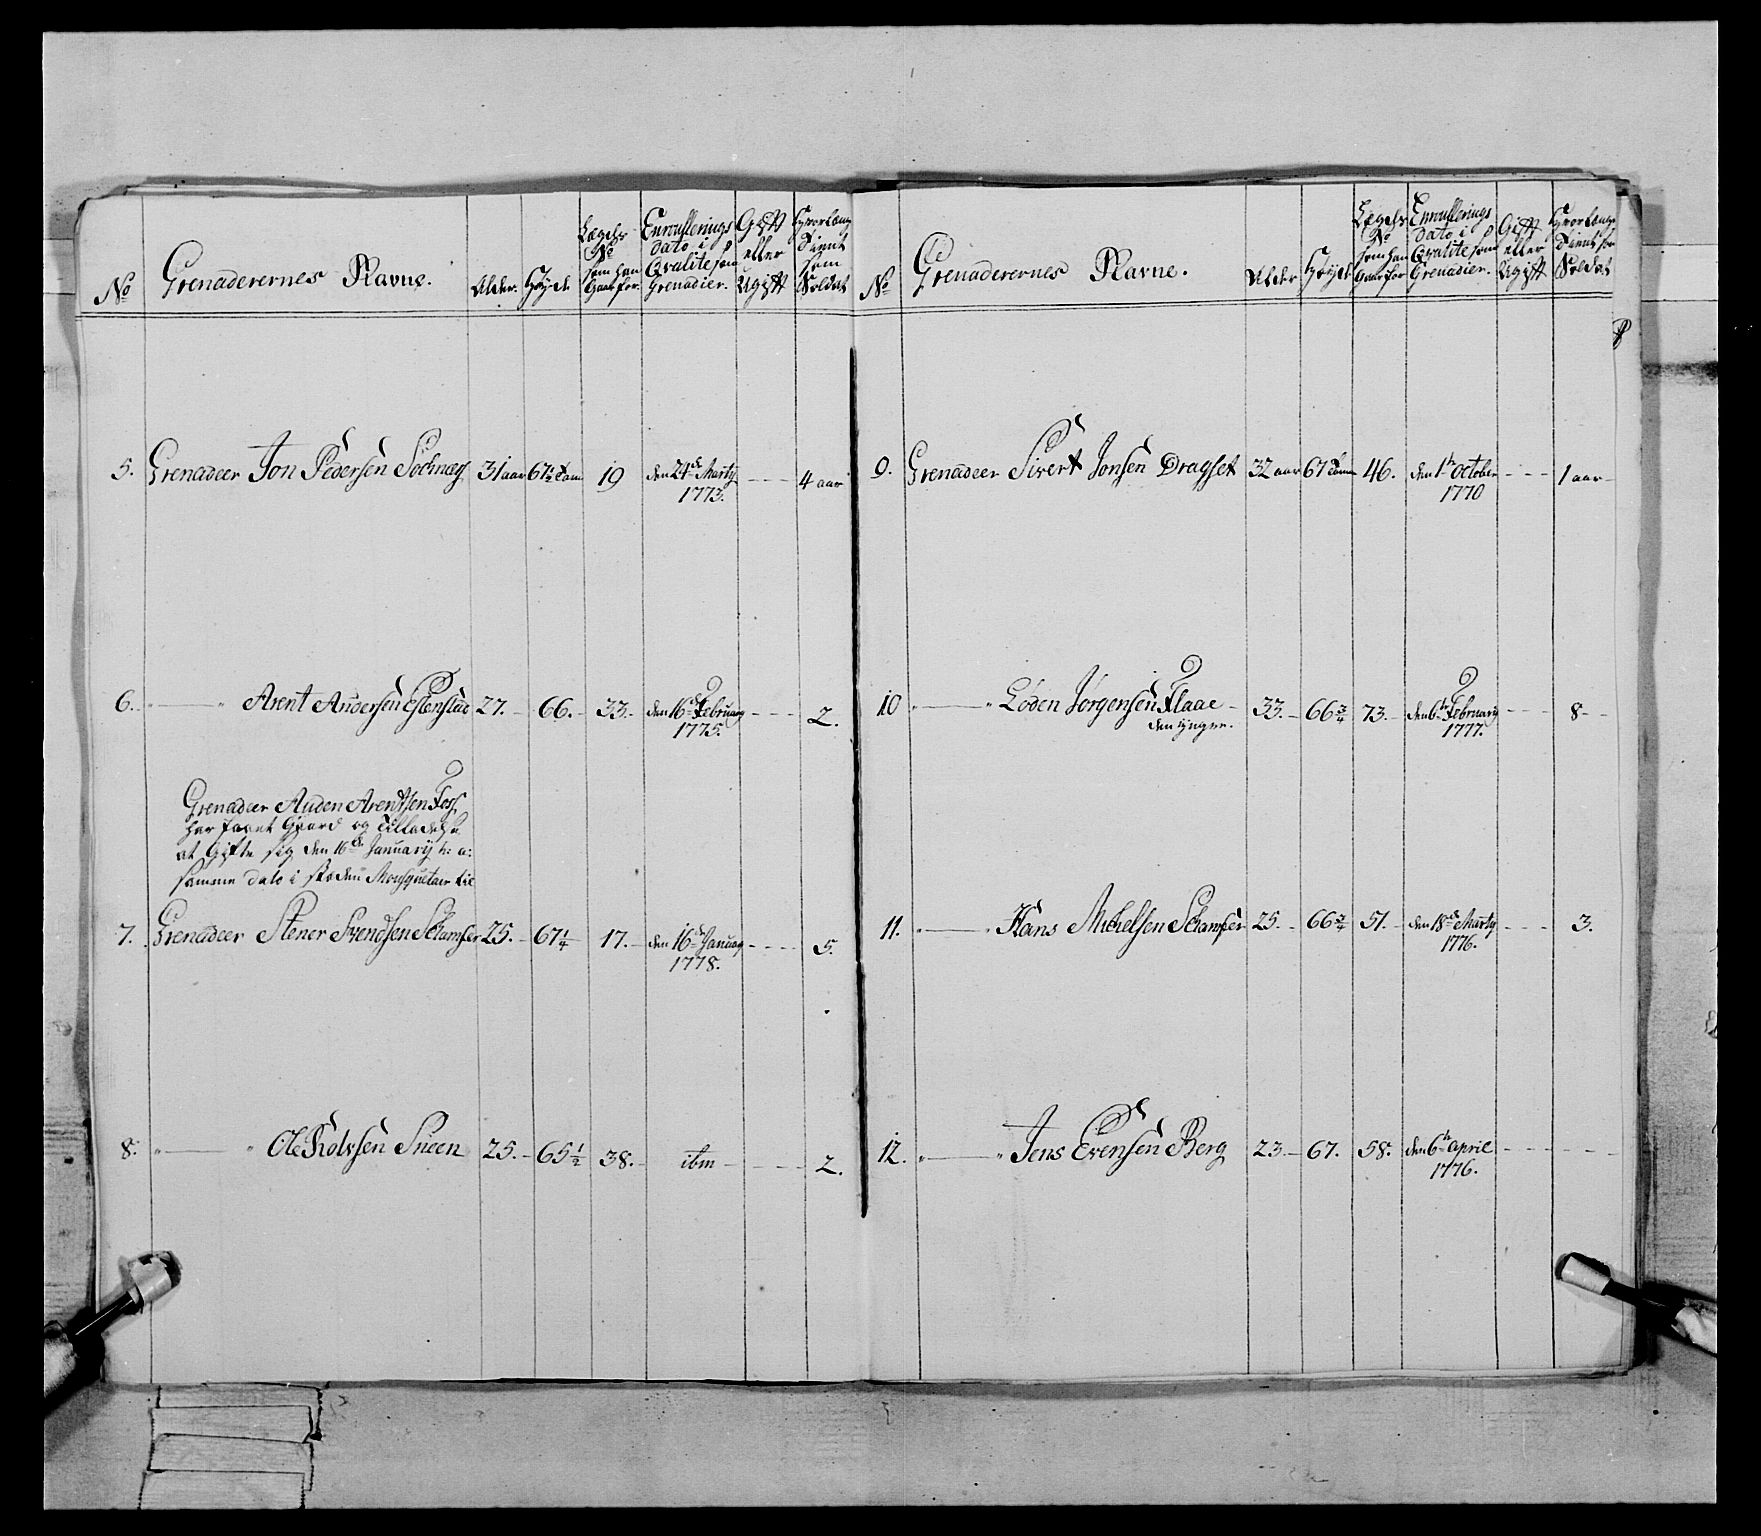 No
Grenaderernes Navne.
Alder.
Høyde
Lægds
No
som han
Gaar for.
Enroullerings
Dato i
Qvalite som
Grenadier.
Gift
eller
Ugift
Hvorlænge
Tient
som
Soldat
5. Grenadeer Jon Pedersen Solnæs 31 aar 67½ Tom̄e 19 den 24de Martÿ --- 4 aar
1773.
6. " Arent Andersen Estenstad 27. 66. 33. den 16de Februarÿ --- 2.
1775.
Grenadeer Auden Arentsen Foss
har faaet Gaard og Tilladelse
at Gifte sig den 16de Januarÿ h: a:
samme Dato i steden Mousquetair til
7. Grenadeer Stener Svendsen Schamfer 25. 67¼ 17. den 16de Januarÿ --- 5.
1778.
8. " " Ole Rolvsen Sneen 25. 65½ 38. ibm --- 2.
No
Grenaderernes Navne.
Alder
Høyde
Lægds
No
som han
Gaar for
Enroullerings
Dato i
Qvalite som
Grenadier.
Gift
eller
Ugift
Hvorlænge
Tient som
Soldat
9. Grenadeer Sivert Jonsen Dragset 32 aar 67 Tom̄e 46. den 1te October --- 1 aar
1770
10 " " Loden Jørgensen Flaae 33. 66¾ 73. den 6te Februarÿ --- 8
den yngre. 1777.
11. " " Hans Michelsen Schamfer 25. 66¾ 51. den 18de Martÿ --- 3.
1776.
12. " " Jens Evensen Berg 23 67. 58. den 6te April
1776.